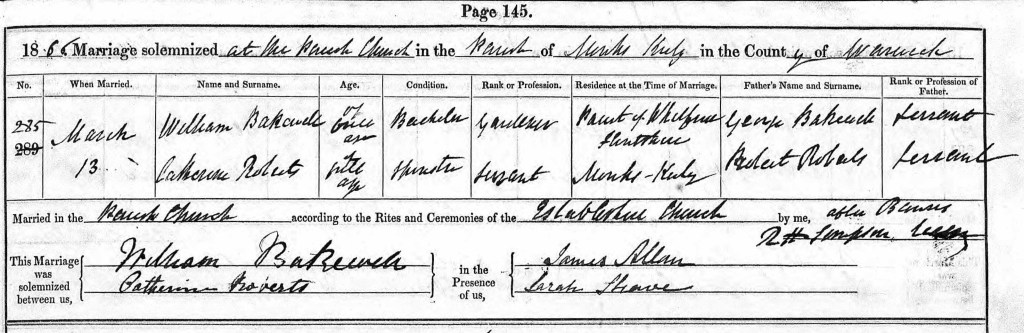 Page 145.
1866 Marriage solemnized at the Parish Church in the Parish of Monks Kirby in the County of Warwick
No. When Married. Name and Surname. Age. Condition. Rank or Profession. Residence at the Time of Marriage. Father's Name and Surname. Rank or Profession of Father.
285 289 March 13 William Bakewell of age Bachelor Gardener Parish of Flintshire George Bakewell Servant
Catherine Roberts of age Spinster Servant Monks-Kirby Robert Roberts Servant
Married in the Parish Church according to the Rites and Ceremonies of the Established Church by me, after Banns
R H Simpson,
This Marriage was solemnized between us, William Bakewell Catherine Roberts in the Presence of us, James Allan Sarah